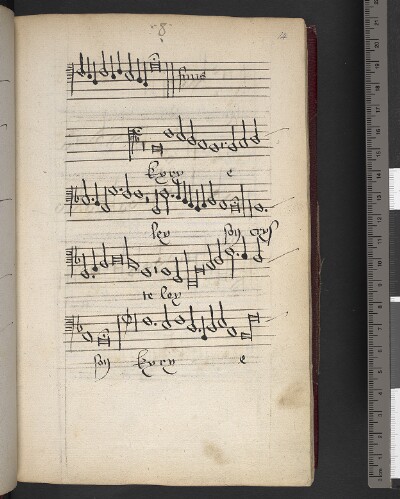 8
14
finis
kyry e
ley son crys
te ley
son kyry e